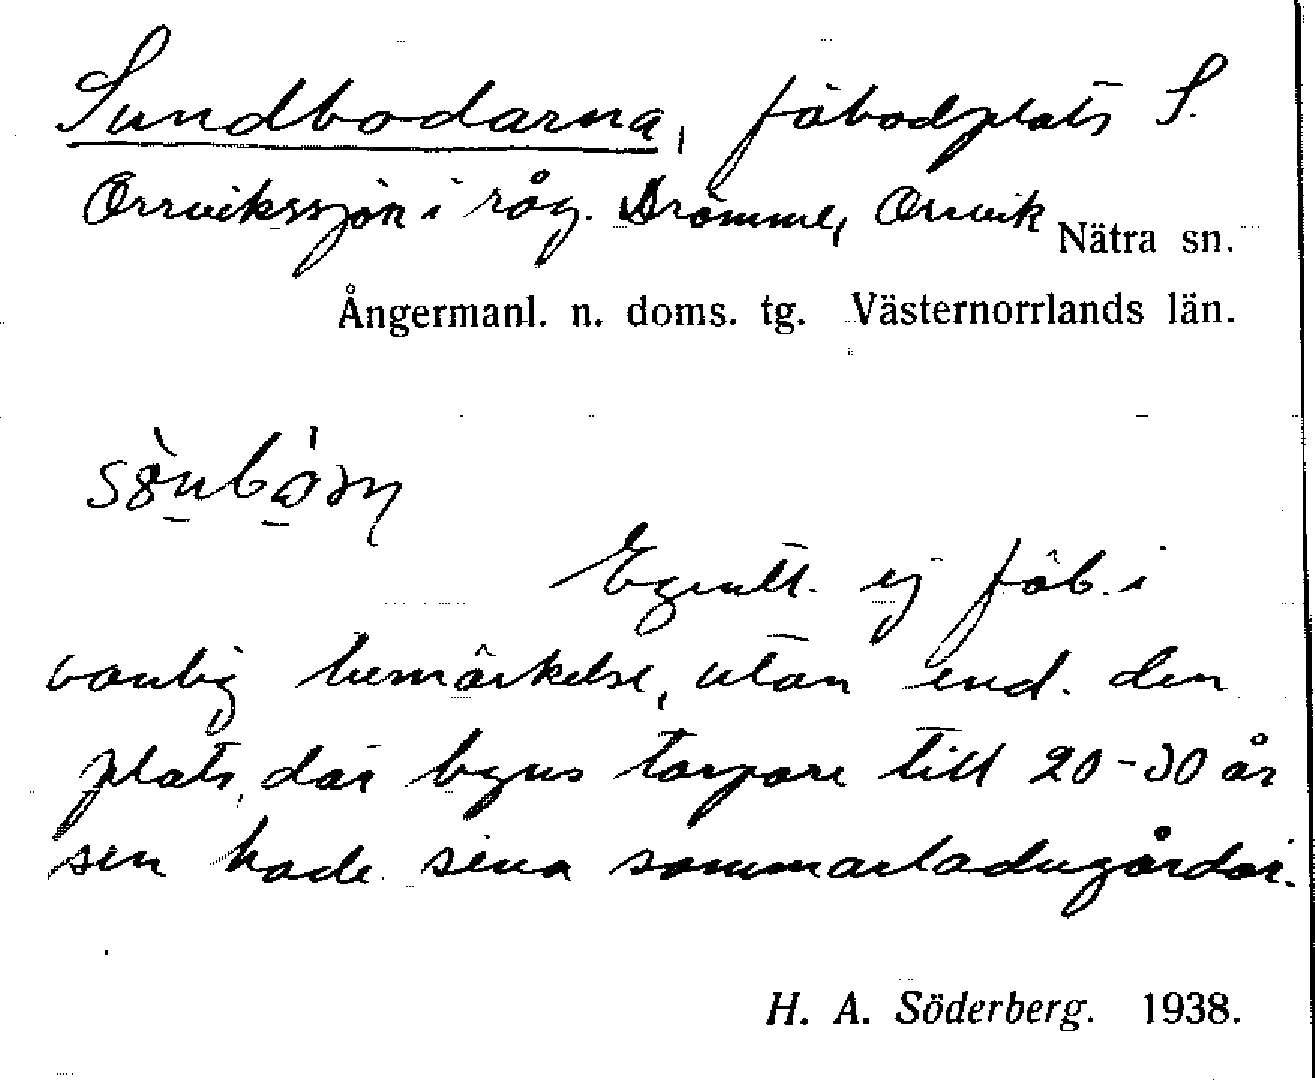 Sundbodarna, fäbodplats S.
Orrvikssjön i råg. Drömme, Orrvik Nätra sn.
Ångermanl. n. doms. tg. Västernorrlands län.
Egentl. ej fäb. i
vanlig bemärkelse, utan end. den
plats, där byns torpare till 20-30 år
sen hade sina sommarladugårdar.
H. A. Söderberg. 1938.